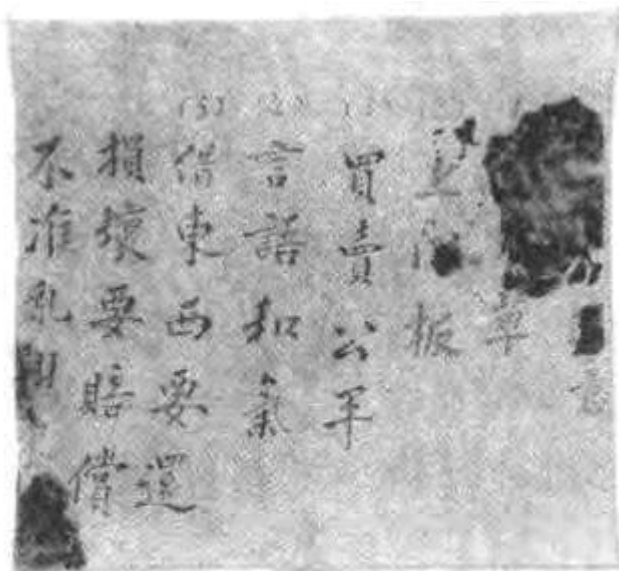 草
上 板
買賣公平
言語和氣
(5) 借東西要還
損壞要賠償
不准乱